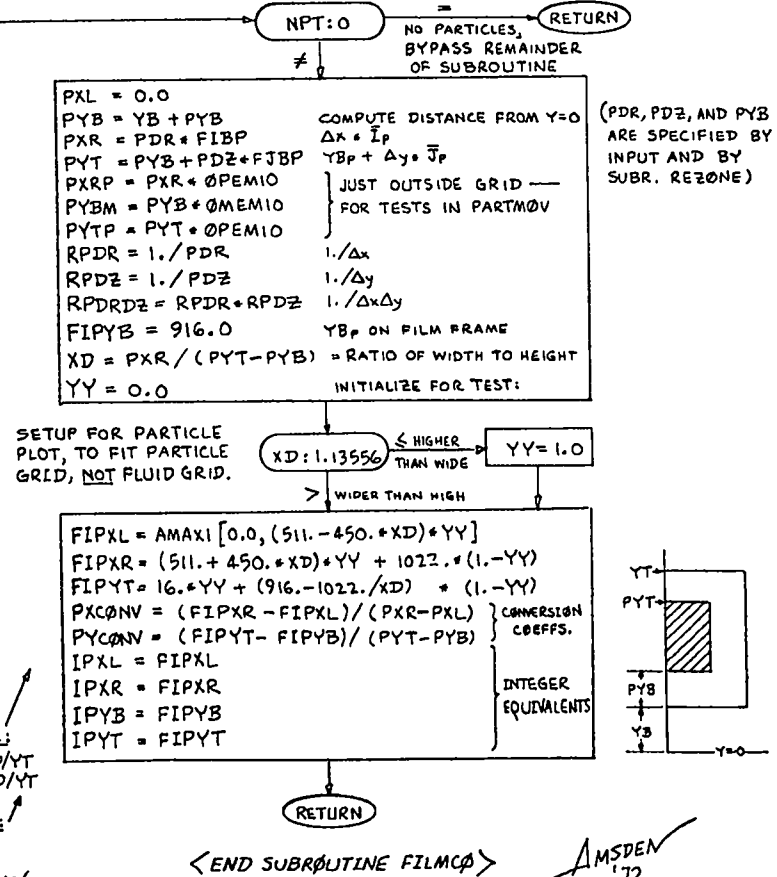 NPT:0
=
RETURN
NO PARTICLES,
BYPASS REMAINDER
OF SUBROUTINE
≠
PXL = 0.0
PYB = YB + PYB COMPUTE DISTANCE FROM Y=0
PXR = PDR * FIBP Δx * I̅p
PYT = PYB + PDZ * FJBP YBp + Δy * J̅p
PXRP = PXR * ØPEM10 JUST OUTSIDE GRID —
PYBM = PYB * ØMEM10 FOR TESTS IN PARTMØV
PYTP = PYT * ØPEM10
RPDR = 1./PDR 1./Δx
RPDZ = 1./PDZ 1./Δy
RPDRDZ = RPDR * RPDZ 1./ΔxΔy
FIPYB = 916.0 YBp ON FILM FRAME
XD = PXR / (PYT-PYB) = RATIO OF WIDTH TO HEIGHT
YY = 0.0 INITIALIZE FOR TEST:
(PDR, PDZ, AND PYB
ARE SPECIFIED BY
INPUT AND BY
SUBR. REZØNE)
SETUP FOR PARTICLE
PLOT, TO FIT PARTICLE
GRID, NOT FLUID GRID.
XD:1.13556
≤ HIGHER
THAN WIDE
YY=1.0
> WIDER THAN HIGH
FIPXL = AMAX1 [0.0, (511.-450.*XD)*YY]
FIPXR = (511.+450.*XD)*YY + 1022.*(1.-YY)
FIPYT = 16.*YY + (916.-1022./XD) * (1.-YY)
PXCØNV = (FIPXR-FIPXL)/(PXR-PXL) CONVERSION
PYCØNV = (FIPYT-FIPYB)/(PYT-PYB) COEFFS.
IPXL = FIPXL
IPXR = FIPXR INTEGER
IPYB = FIPYB EQUIVALENTS
IPYT = FIPYT
YT
PYT
PYB
YB
Y=0
/YT
/YT
RETURN
<END SUBRØUTINE FILMCØ>
AMSDEN
'72